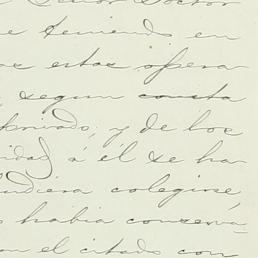 Señor Doctor
e teniendo en
os estos opera
segun consta
privado; y de los
ridad á él se ha
udiera colegirse,
s habia conserva-
on el citado con